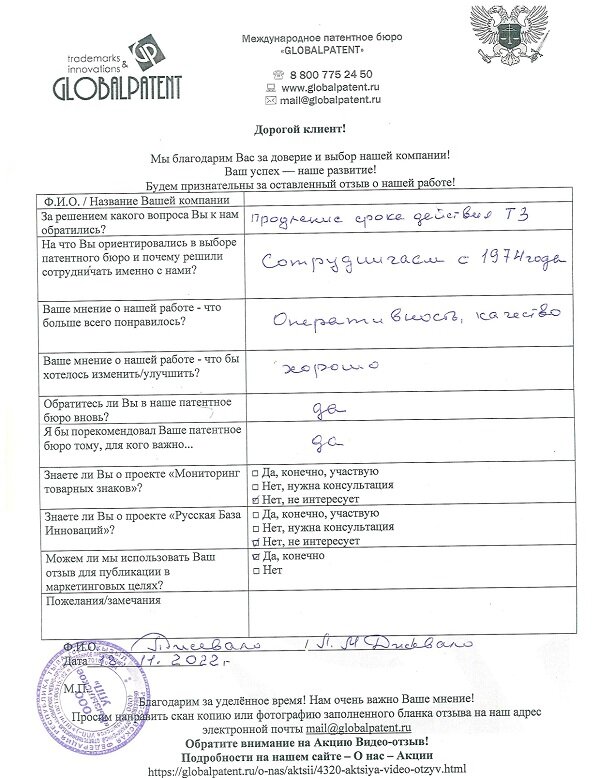 trademarks
& innovations
GLOBALPATENT
Международное патентное бюро
«GLOBALPATENT»
8 800 775 24 50
www.globalpatent.ru
mail@globalpatent.ru
Дорогой клиент!
Мы благодарим Вас за доверие и выбор нашей компании!
Ваш успех — наше развитие!
Будем признательны за оставленный отзыв о нашей работе!
Ф.И.О. / Название Вашей компании
За решением какого вопроса Вы к нам
обратились?
Продление срока действия ТЗ
На что Вы ориентировались в выборе
патентного бюро и почему решили
сотрудничать именно с нами?
Сотрудничаем с 1974 года
Ваше мнение о нашей работе - что
больше всего понравилось?
Оперативность, качество
Ваше мнение о нашей работе - что бы
хотелось изменить/улучшить?
хорошо
Обратитесь ли Вы в наше патентное
бюро вновь?
да
Я бы порекомендовал Ваше патентное
бюро тому, для кого важно...
да
Знаете ли Вы о проекте «Мониторинг
товарных знаков»?
Да, конечно, участвую
Нет, нужна консультация
Нет, не интересует
Знаете ли Вы о проекте «Русская База
Инноваций»?
Да, конечно, участвую
Нет, нужна консультация
Нет, не интересует
Можем ли мы использовать Ваш
отзыв для публикации в
маркетинговых целях?
Да, конечно
Нет
Пожелания/замечания
Ф.И.О. / Л. М
Дата 18. 11. 2022 г
М.П.
ООО
Благодарим за уделённое время! Нам очень важно Ваше мнение!
Просим направить скан копию или фотографию заполненного бланка отзыва на наш адрес
электронной почты mail@globalpatent.ru
Обратите внимание на Акцию Видео-отзыв!
Подробности на нашем сайте – О нас – Акции
https://globalpatent.ru/o-nas/aktsii/4320-aktsiya-video-otzyv.html